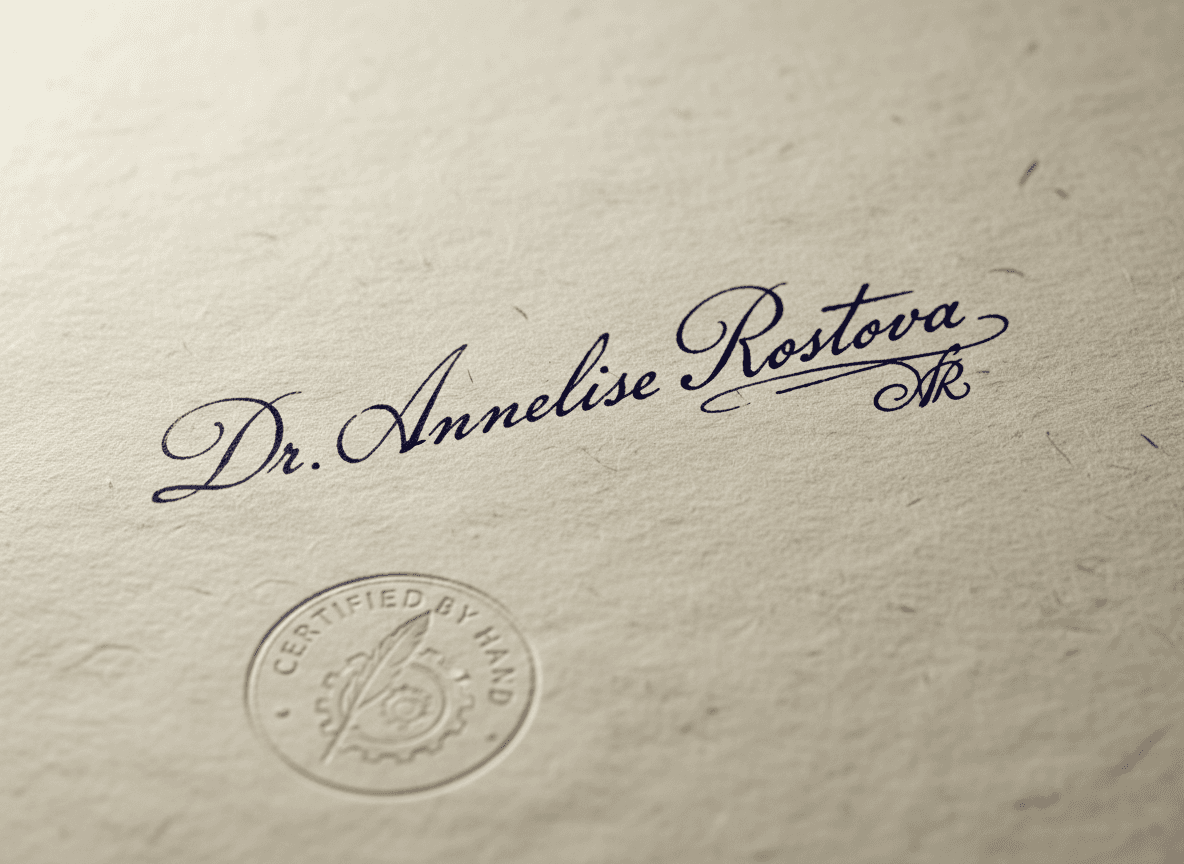 Dr. Annelise Rostova
AR
CERTIFIED BY HAND